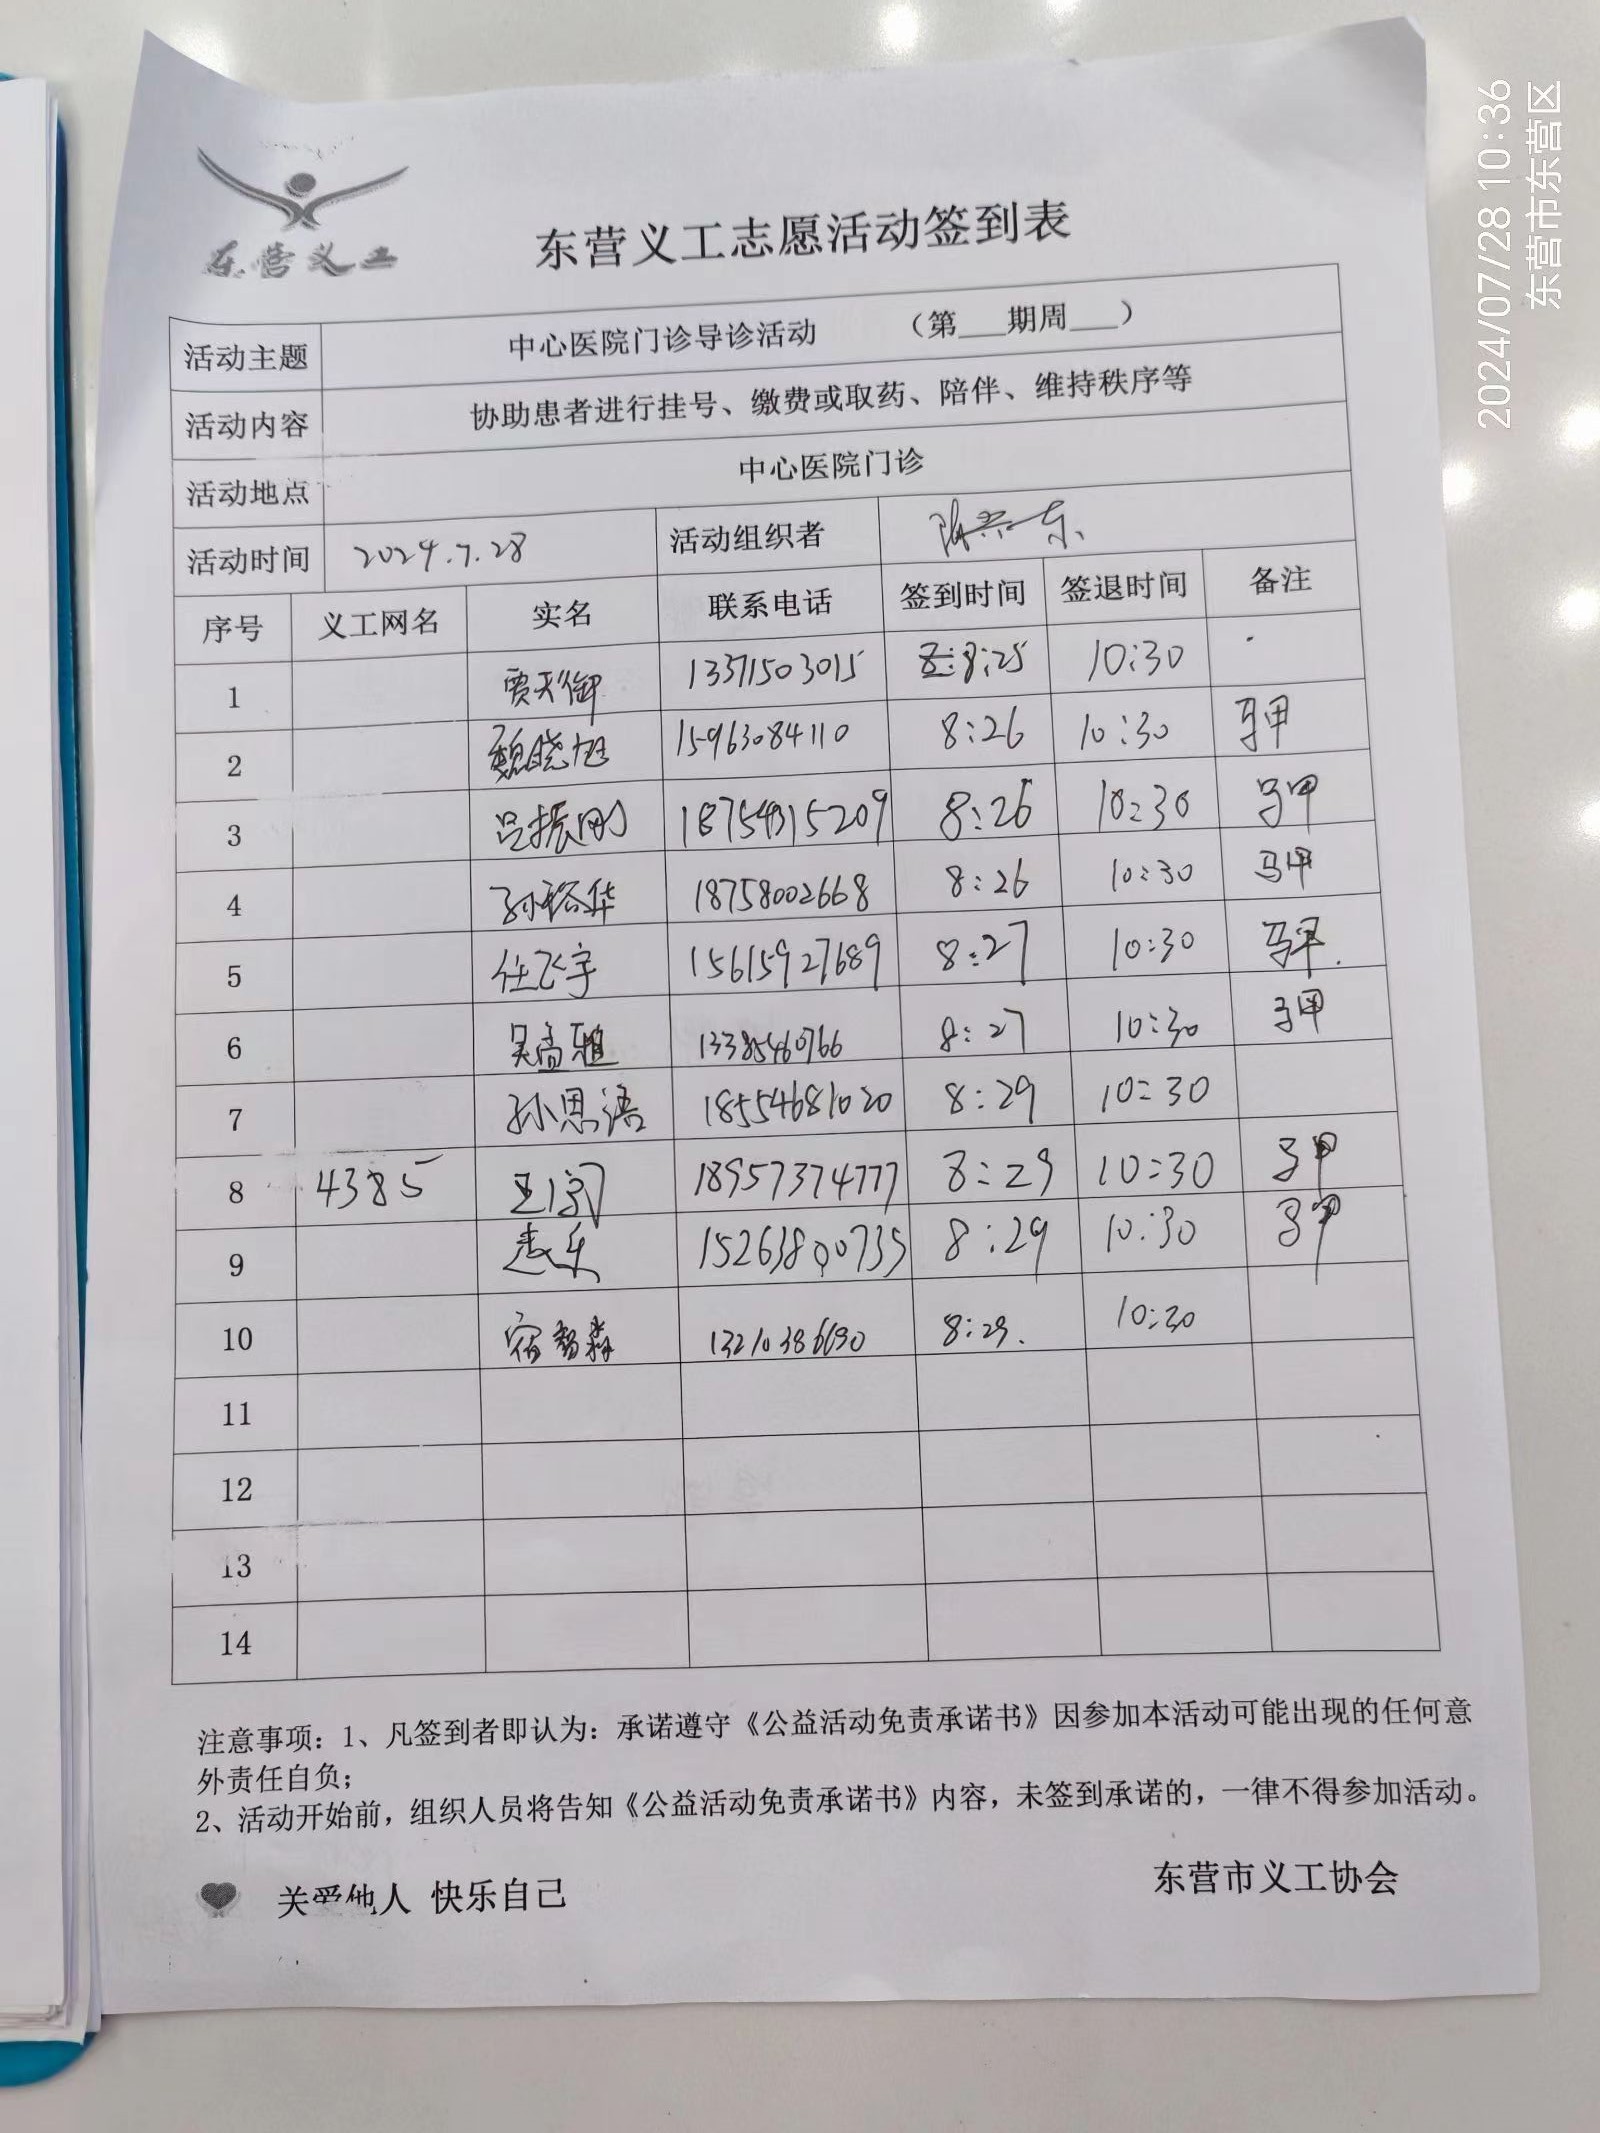 2024/07/28 10:36
东营市东营区
东营义工
东营义工志愿活动签到表
活动主题 中心医院门诊导诊活动 （第___期周___）
活动内容 协助患者进行挂号、缴费或取药、陪伴、维持秩序等
活动地点 中心医院门诊
活动时间 2024.7.28 活动组织者
序号 义工网名 实名 联系电话 签到时间 签退时间 备注
1 贾天御 13371503015 8:25 10:30
2 魏晓旭 15963084110 8:26 10:30 马甲
3 吕振刚 18754315209 8:26 10:30 马甲
4 孙裕华 18758002668 8:26 10:30 马甲
5 任飞宇 15615927689 8:27 10:30 马甲
6 吴高雅 13385460766 8:27 10:30 马甲
7 孙思语 18554681020 8:29 10:30
8 4385 18957374777 8:29 10:30 马甲
9 15263800735 8:29 10:30 马甲
10 宿智森 13210386690 8:29. 10:30
11
12
13
14
注意事项：1、凡签到者即认为：承诺遵守《公益活动免责承诺书》因参加本活动可能出现的任何意
外责任自负；
2、活动开始前，组织人员将告知《公益活动免责承诺书》内容，未签到承诺的，一律不得参加活动。
关爱他人 快乐自己
东营市义工协会